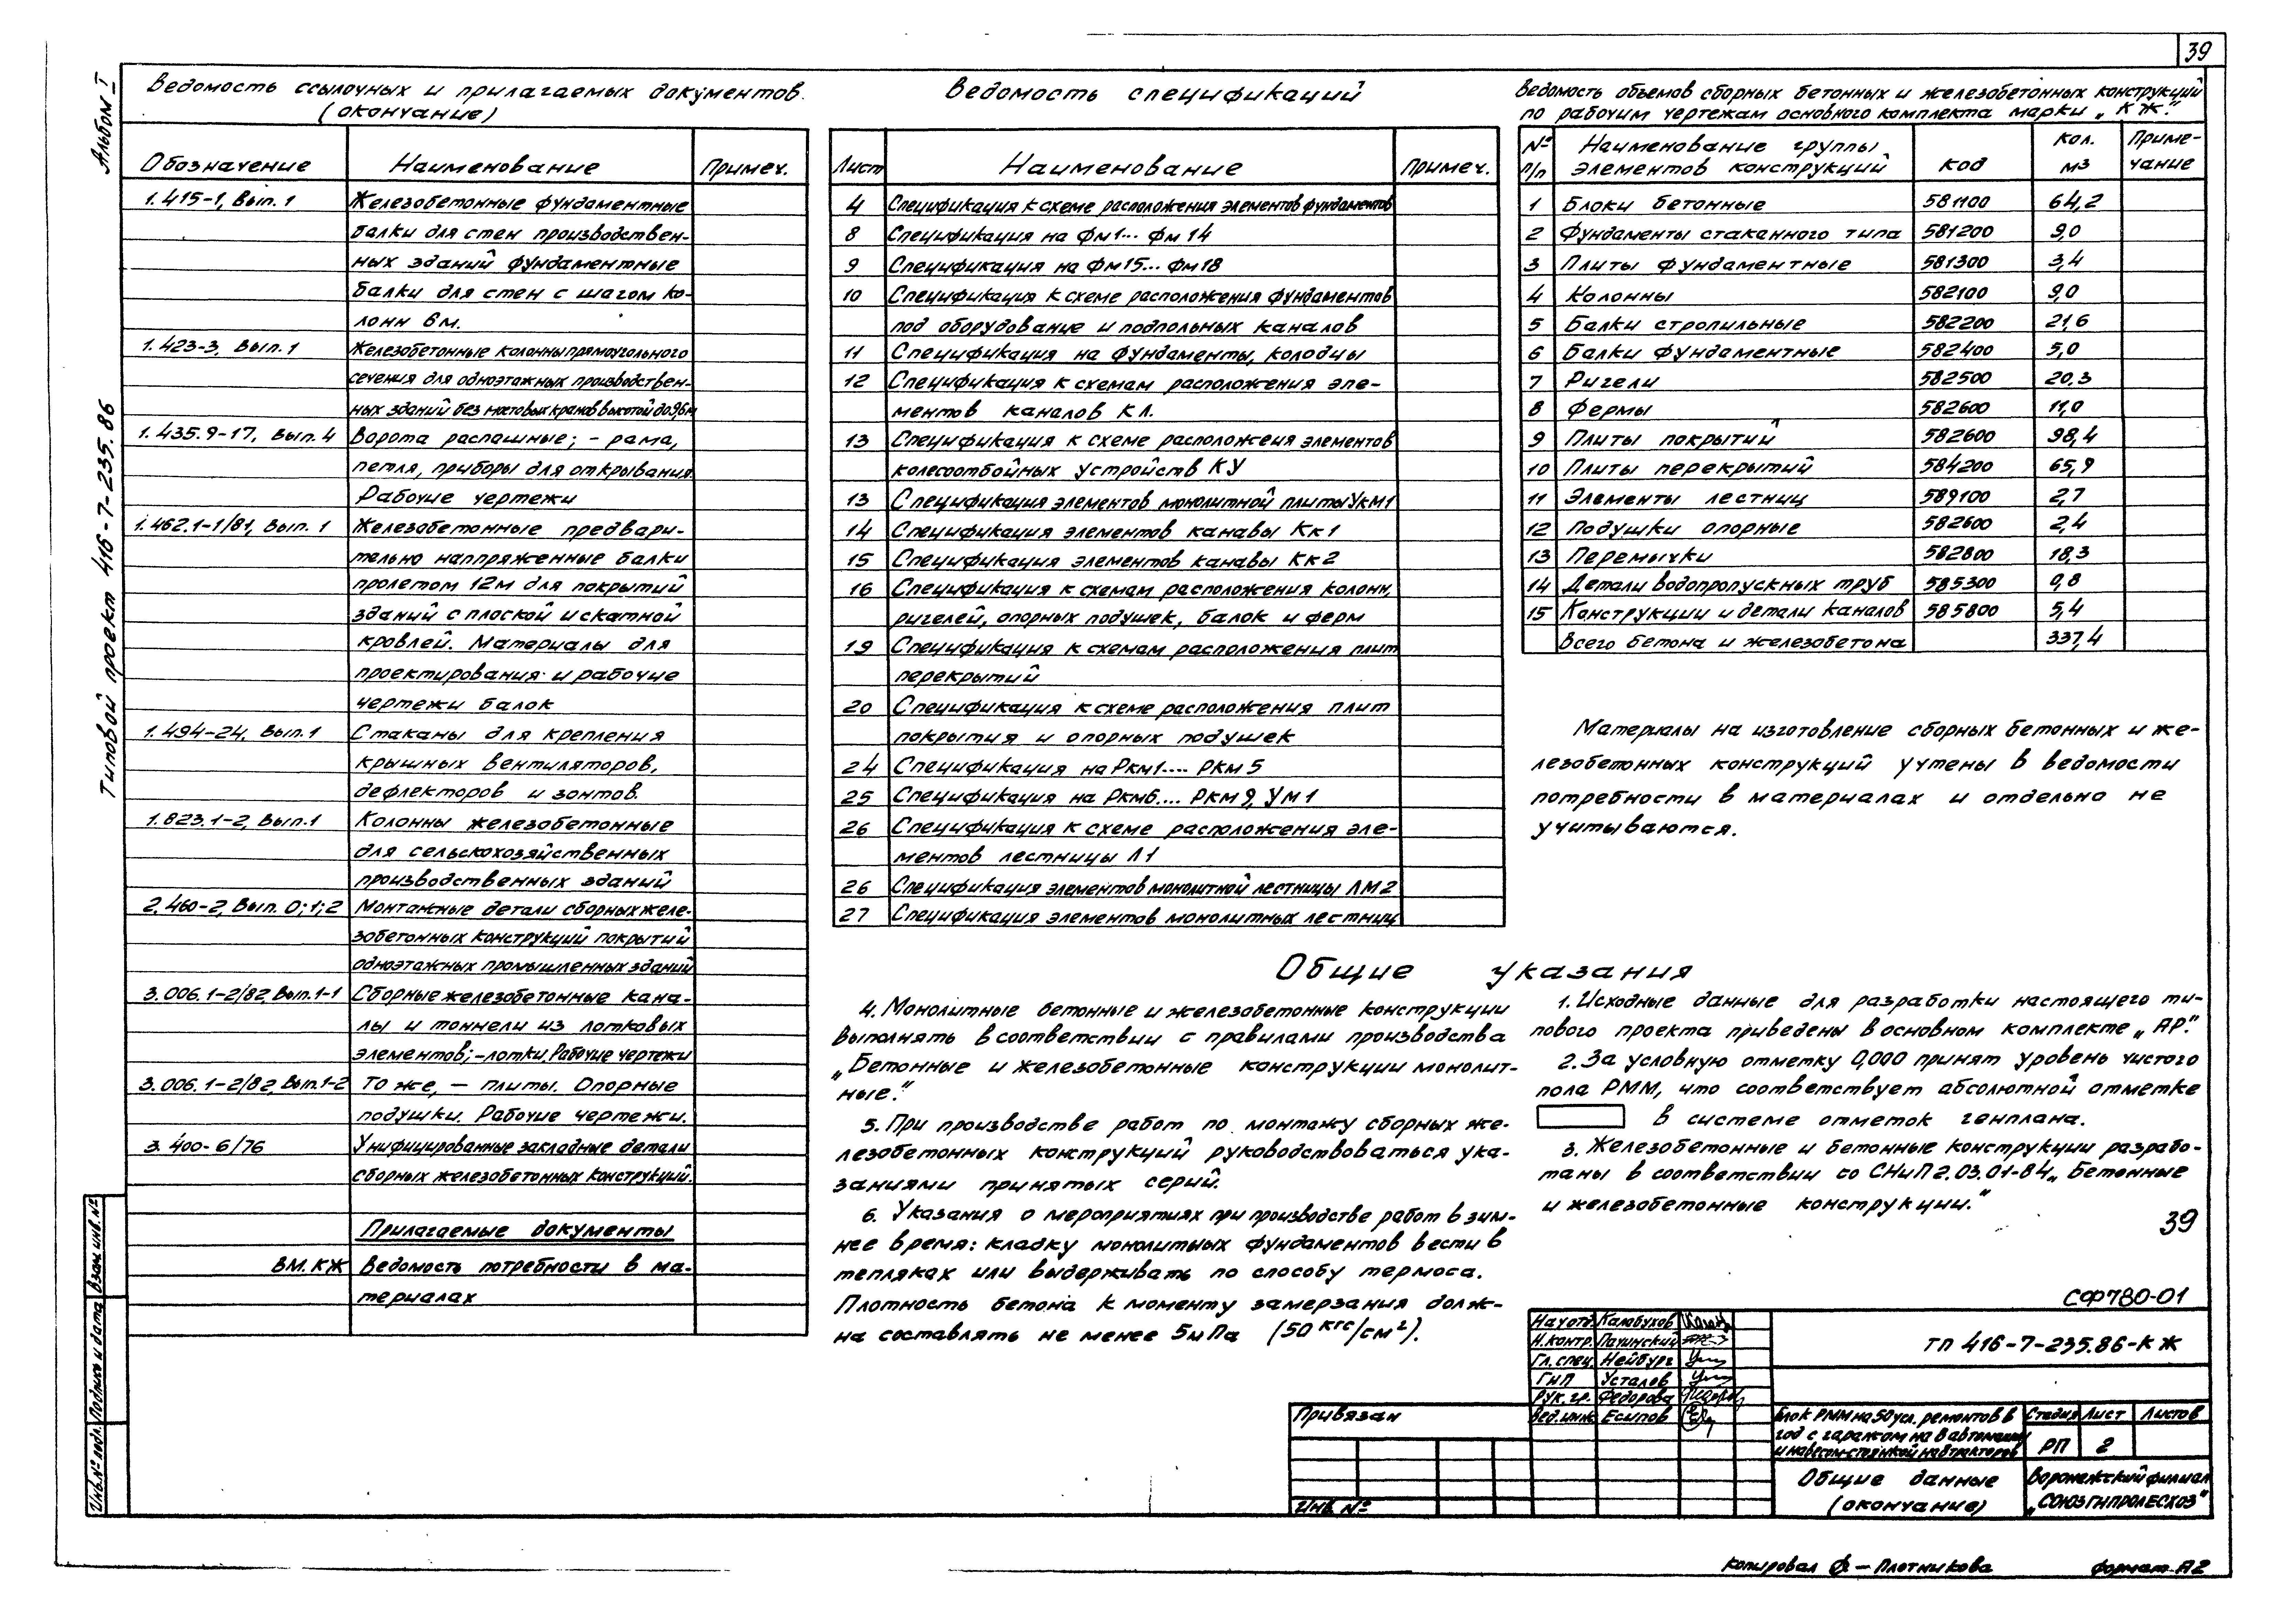 39
Альбом I
Типовой проект 416-7-235.86
Ведомость ссылочных и прилагаемых документов.
(окончание)
Обозначение Наименование Примеч.
1.415-1, Вып. 1 Железобетонные фундаментные
балки для стен производствен-
ных зданий фундаментные
балки для стен с шагом ко-
лонн 6м.
1.423-3, Вып. 1 Железобетонные колонны прямоугольного
сечения для одноэтажных производствен-
ных зданий без мостовых кранов высотой до 9,6м
1.435.9-17, Вып. 4 Ворота распашные; - рама,
петля, приборы для открывания.
Рабочие чертежи
1.462.1-1/81, Вып. 1 Железобетонные предвари-
тельно наппряженные балки
пролетом 12м для покрытий
зданий с плоской и скатной
кровлей. Материалы для
проектирования и рабочие
чертежи балок
1.494-24, Вып.1 Стаканы для крепления
крышных вентиляторов,
дефлекторов и зонтов.
1.823.1-2, Вып.1 Колонны железобетонные
для сельскохозяйственных
производственных зданий
2.460-2, Вып. 0;1;2 Монтажные детали сборных желе-
зобетонных конструкций покрытий
одноэтажных промышленных зданий
3.006.1-2/82, Вып.1-1 Сборные железобетонные кана-
лы и тоннели из лотковых
элементов; -лотки. Рабочие чертежи
3.006.1-2/82, Вып.1-2 То же, — плиты. Опорные
подушки. Рабочие чертежи.
3.400-6/76 Унифицированные закладные детали
сборных железобетонных конструкций.
Прилагаемые документы
ВМ.КЖ Ведомость потребности в ма-
териалах
Ведомость спецификаций
Лист Наименование Примеч.
4 Спецификация к схеме расположения элементов фундаментов
8 Спецификация на Фм1... Фм14
9 Спецификация на Фм15... Фм18
10 Спецификация к схеме расположения фундаментов
под оборудование и подпольных каналов
11 Спецификация на фундаменты, колодцы
12 Спецификация к схемам расположения эле-
ментов каналов КЛ.
13 Спецификация к схеме расположеия элементов
колесоотбойных устройств КУ
13 Спецификация элементов монолитной плиты Укм1
14 Спецификация элементов канавы Кк1
15 Спецификация элементов канавы Кк2
16 Спецификация к схемам расположения колонн,
ригелей, опорных подушек, балок и ферм
19 Спецификация к схемам расположения плит
перекрытий
20 Спецификация к схеме расположения плит
покрытия и опорных подушек
24 Спецификация на Ркм1.... Ркм5
25 Спецификация на Ркм6.... Ркм9, Ум1
26 Спецификация к схеме расположения эле-
ментов лестницы Л1
26 Спецификация элементов монолитной лестницы ЛМ2
27 Спецификация элементов монолитных лестниц
Ведомость объемов сборных бетонных и железобетонных конструкций
по рабочим чертежам основного комплекта марки „КЖ".
№ п/п Наименование группы элементов конструкций Код Кол. м3 Приме-чание
1 Блоки бетонные 581100 64,2
2 Фундаменты стаканного типа 581200 9,0
3 Плиты фундаментные 581300 3,4
4 Колонны 582100 9,0
5 Балки стропильные 582200 21,6
6 Балки фундаментные 582400 5,0
7 Ригели 582500 20,3
8 Фермы 582600 11,0
9 Плиты покрытий 582600 98,4
10 Плиты перекрытий 584200 65,9
11 Элементы лестниц 589100 2,7
12 Подушки опорные 582600 2,4
13 Перемычки 582800 18,3
14 Детали водопропускных труб 585300 0,8
15 Конструкции и детали каналов 585800 5,4
Всего бетона и железобетона 337,4
Материалы на изготовление сборных бетонных и же-
лезобетонных конструкций учтены в ведомости
потребности в материалах и отдельно не
учитываются.
Общие указания
1. Исходные данные для разработки настоящего ти-
пового проекта приведены в основном комплекте „АР".
2. За условную отметку 0,000 принят уровень чистого
пола РММ, что соответствует абсолютной отметке
в системе отметок генплана.
3. Железобетонные и бетонные конструкции разрабо-
таны в соответствии со СНиП 2.03.01-84 „Бетонные
и железобетонные конструкции."
4. Монолитные бетонные и железобетонные конструкции
выполнять в соответствии с правилами производства
„Бетонные и железобетонные конструкции монолит-
ные."
5. При производстве работ по монтажу сборных же-
лезобетонных конструкций руководствоваться ука-
заниями принятых серий.
6. Указания о мероприятиях при производстве работ в зим-
нее время: кладку монолитных фундаментов вести в
тепляках или выдерживать по способу термоса.
Плотность бетона к моменту замерзания долж-
на составлять не менее 5мПа (50 кгс/см²).
39
СФ780-01
Нач.отд. Калабухов
Н.контр. Пачинский
Гл.спец. Нейбург
ГИП Усталов
Рук.гр. Федорова
Вед.инж. Есипов
ТП 416-7-235.86-КЖ
Привязан
Инв. №
Блок РММ на 50 усл. ремонтов в
год с гаражом на 8 автомашин
и навесом-стоянкой на тракторов
Стадия Лист Листов
РП 2
Общие данные
(окончание)
Воронежский филиал
„СОЮЗГИПРОЛЕСХОЗ"
Инв.№ подл. Подпись и дата Взам. инв.№
Копировал — Плотникова
Формат А2